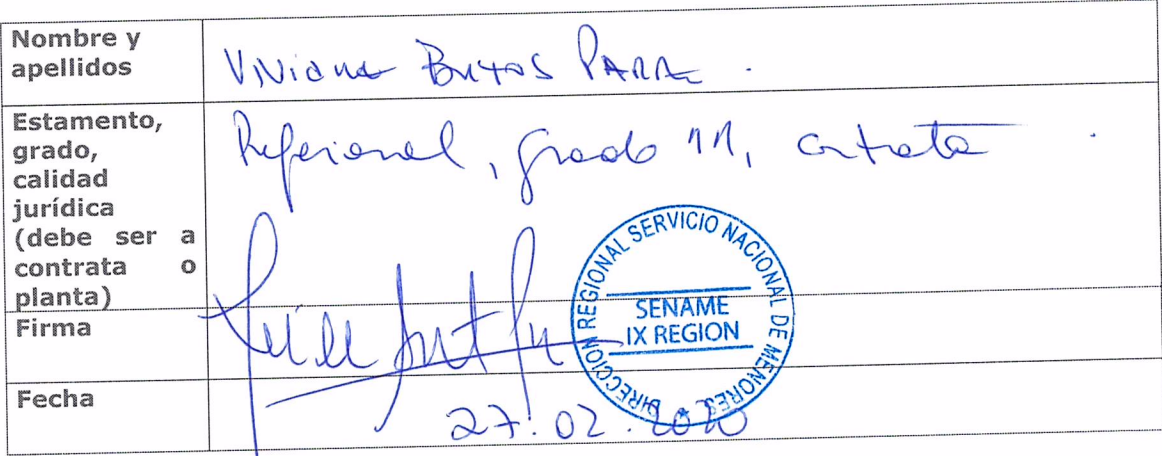 Nombre y apellidos
Viviana Bustos Parra.
Estamento, grado, calidad jurídica (debe ser a contrata o planta)
Profesional, grado 11, contrata.
Firma
DIRECCION REGIONAL SERVICIO NACIONAL DE MENORES
SENAME
IX REGION
Fecha
27.02.2020